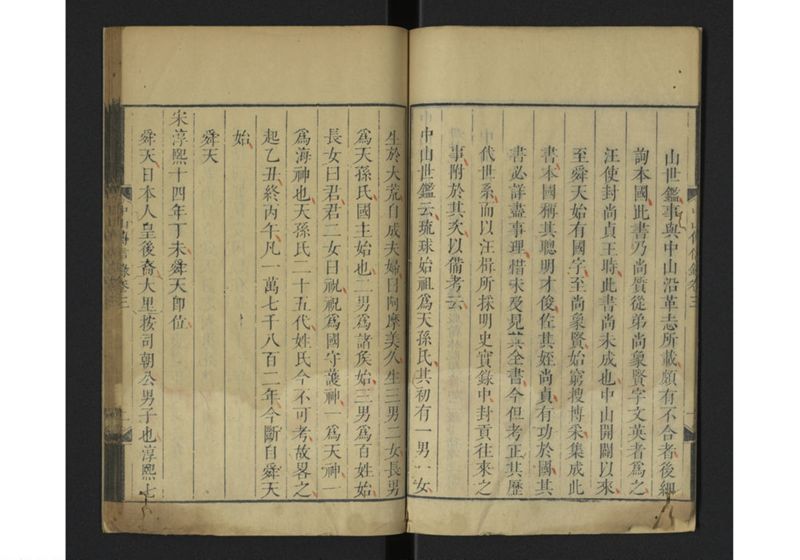 山世鑑事與中山沿革志所載頗有不合者後細
詢本國此書乃尚質從弟尚象賢字文英者爲之
汪使封尚貞王時此書尚未成也中山開闢以來
至舜天始有國字至尚象賢始窮搜博采集成此
書本國稱其聰明才俊佐其姪尚貞有功於國其
書必詳盡事理惜未及見其全書今但考正其歷
代世系而以汪楫所採明史實錄中封貢往來之
事附於其次以備考云
中山世鑑云琉球始祖爲天孫氏其初有一男一女
生於大荒自成夫婦曰阿摩美久生三男二女長男
爲天孫氏國主始也二男爲諸侯始三男爲百姓始
長女曰君君二女曰祝祝爲國守護神一爲天神一
爲海神也天孫氏二十五代姓氏今不可考故畧之
起乙丑終丙午凡一萬七千八百二年今斷自舜天
始
舜天
宋淳熙十四年丁未舜天卽位
舜天日本人皇後裔大里按司朝公男子也淳熙七